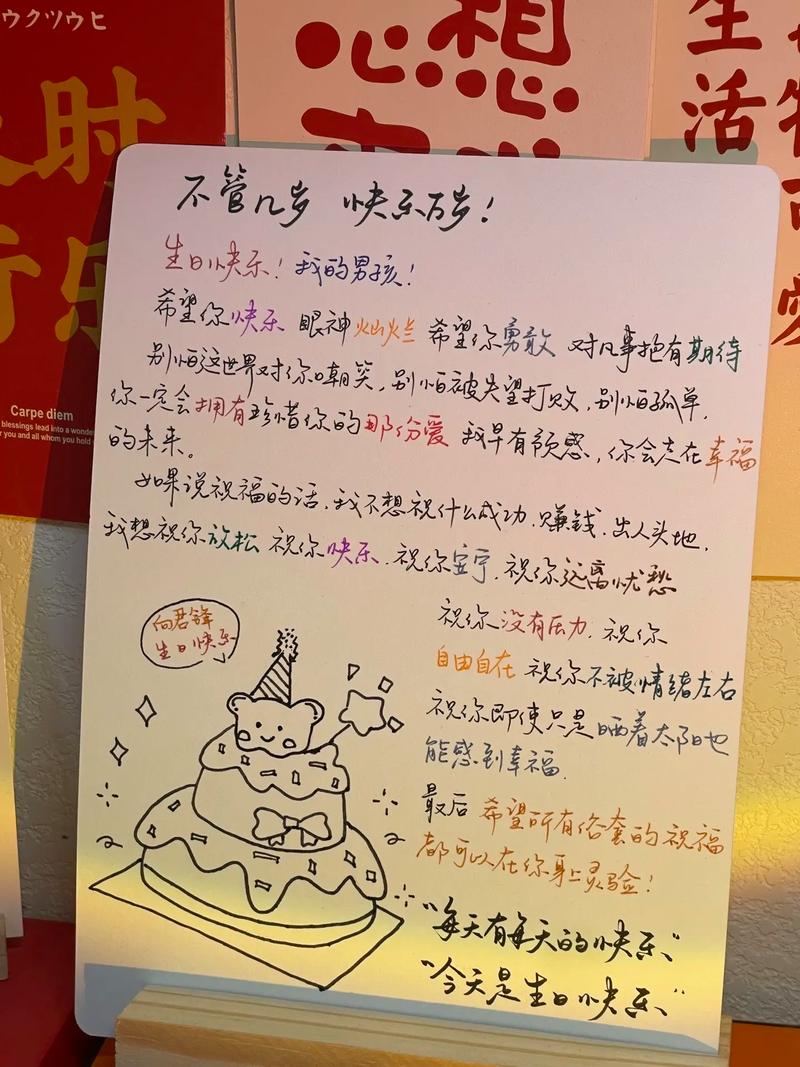 ウクツウヒ
时
行乐
Carpe diem
blessings lead into a wonde
r you and all whom you hold
心想
生活
可爱
不管几岁 快乐万岁!
生日快乐! 我的男孩!
希望你快乐 眼神灿烂 希望你勇敢 对凡事抱有期待
别怕这世界对你嘲笑,别怕被失望打败,别怕孤单,
你一定会拥有珍惜你的那份爱 我早有预感,你会走在幸福
的未来。
如果说祝福的话,我不想祝什么成功,赚钱,出人头地,
我想祝你放松 祝你快乐,祝你安宁,祝你远离忧愁
祝你没有压力,祝你
自由自在 祝你不被情绪左右
祝你即使只是晒着太阳也
能感到幸福.
最后 希望所有俗套的祝福
都可以在你身上灵验!
"每天有每天的快乐"
"今天是生日快乐"
向君锋
生日快乐